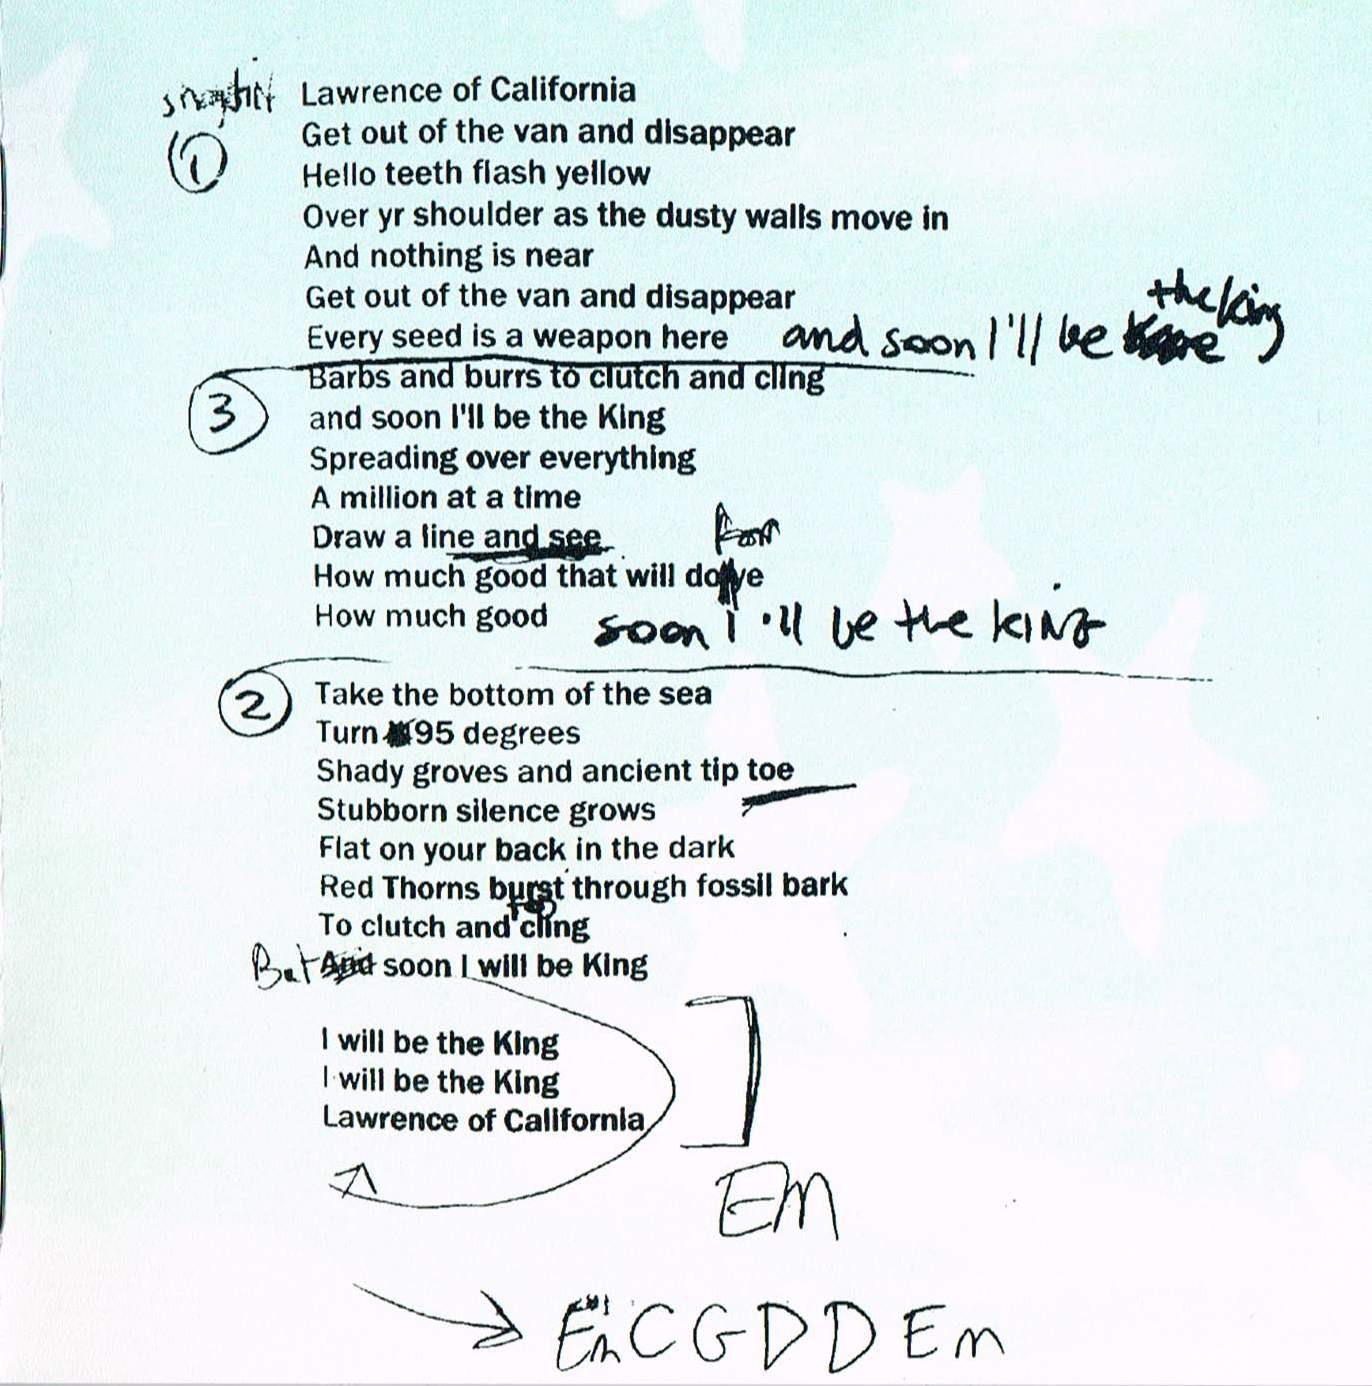 Lawrence of California
① Get out of the van and disappear
Hello teeth flash yellow
Over yr shoulder as the dusty walls move in
And nothing is near
Get out of the van and disappear
the king
Every seed is a weapon here and soon I'll be
③ Barbs and burrs to clutch and cling
and soon I'll be the King
Spreading over everything
A million at a time
Draw a line and see
How much good that will do ye
How much good soon i'll be the king
② Take the bottom of the sea
Turn 95 degrees
Shady groves and ancient tip toe
Stubborn silence grows
Flat on your back in the dark
Red Thorns burst through fossil bark
To clutch and cling
But And soon I will be King
I will be the King
I will be the King
Lawrence of California
Em
Em C G D D Em